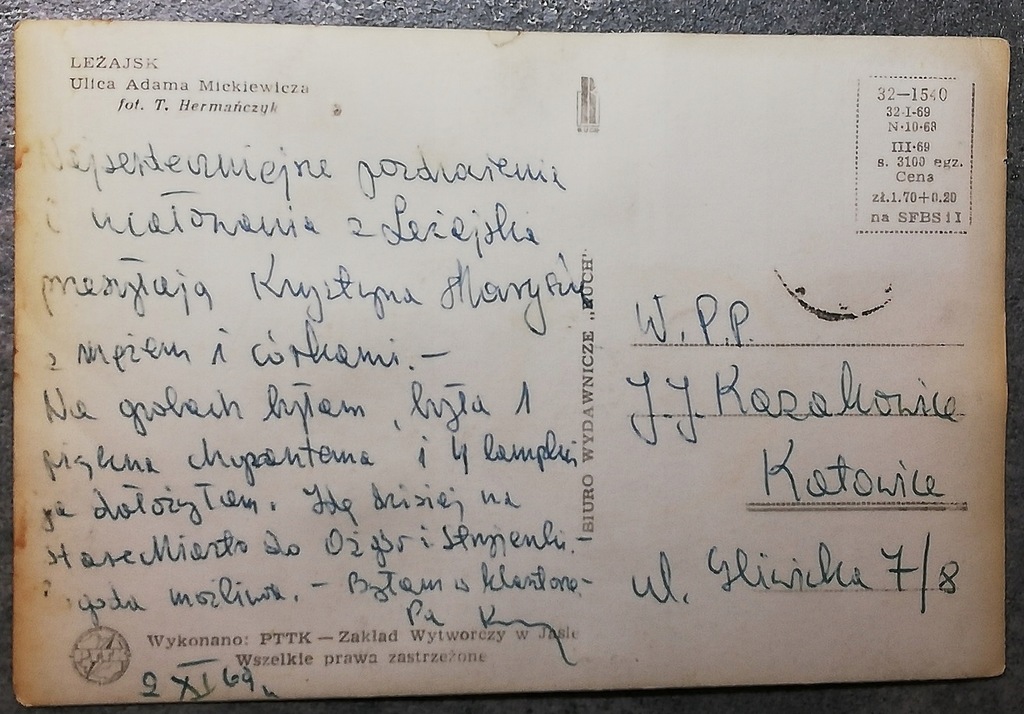 LEŻAJSK
Ulica Adama Mickiewicza
fot. T. Hermańczyk
Najserdeczniejsze pozdrowienia
i ucałowania z Leżajska
przesyłają Krystyna
z mężem i córkami. –
Na grobach byłam, była 1
piękna chryzantema i 4 lampki
ja dołożyłam. Idę dzisiaj na
stare Miasto do Ożgów i Stupienki. –
goda możliwa. – Byłam w klasztorze
Pa
2 XI 69
Wykonano: PTTK — Zakład Wytworczy w Jaśle
Wszelkie prawa zastrzeżone
PTTK
BIURO WYDAWNICZE „RUCH"
32—1540
32-I-69
N-10-68
III-69
s. 3100 egz.
Cena
zł.1.70+0.20
na SFBS i I
W.P.P.
J.J. Kazakowice
Katowice
ul. Gliwicka 7/8